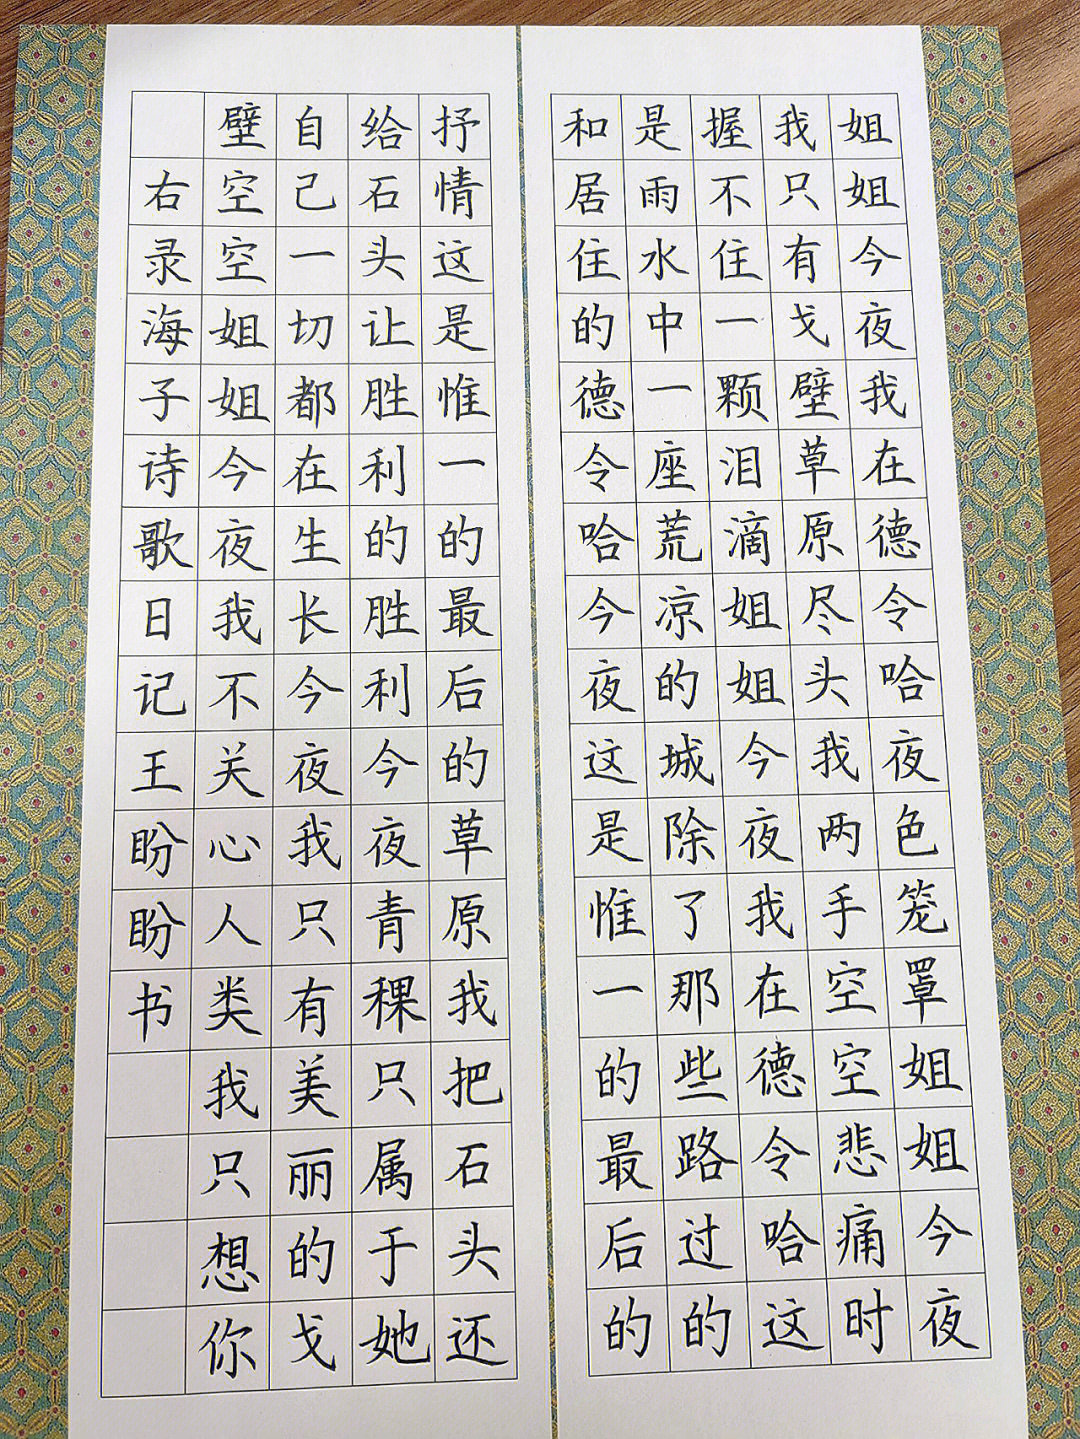 姐姐今夜我在德令哈夜色笼罩姐姐今夜
我只有戈壁草原尽头我两手空空悲痛时
握不住一颗泪滴姐姐今夜我在德令哈这
是雨水中一座荒凉的城除了那些路过的
和居住的德令哈今夜这是惟一的最后的
抒情这是惟一的最后的草原我把石头还
给石头让胜利的胜利今夜青稞只属于她
自己一切都在生长今夜我只有美丽的戈
壁空空姐姐今夜我不关心人类我只想你
右录海子诗歌日记王盼盼书